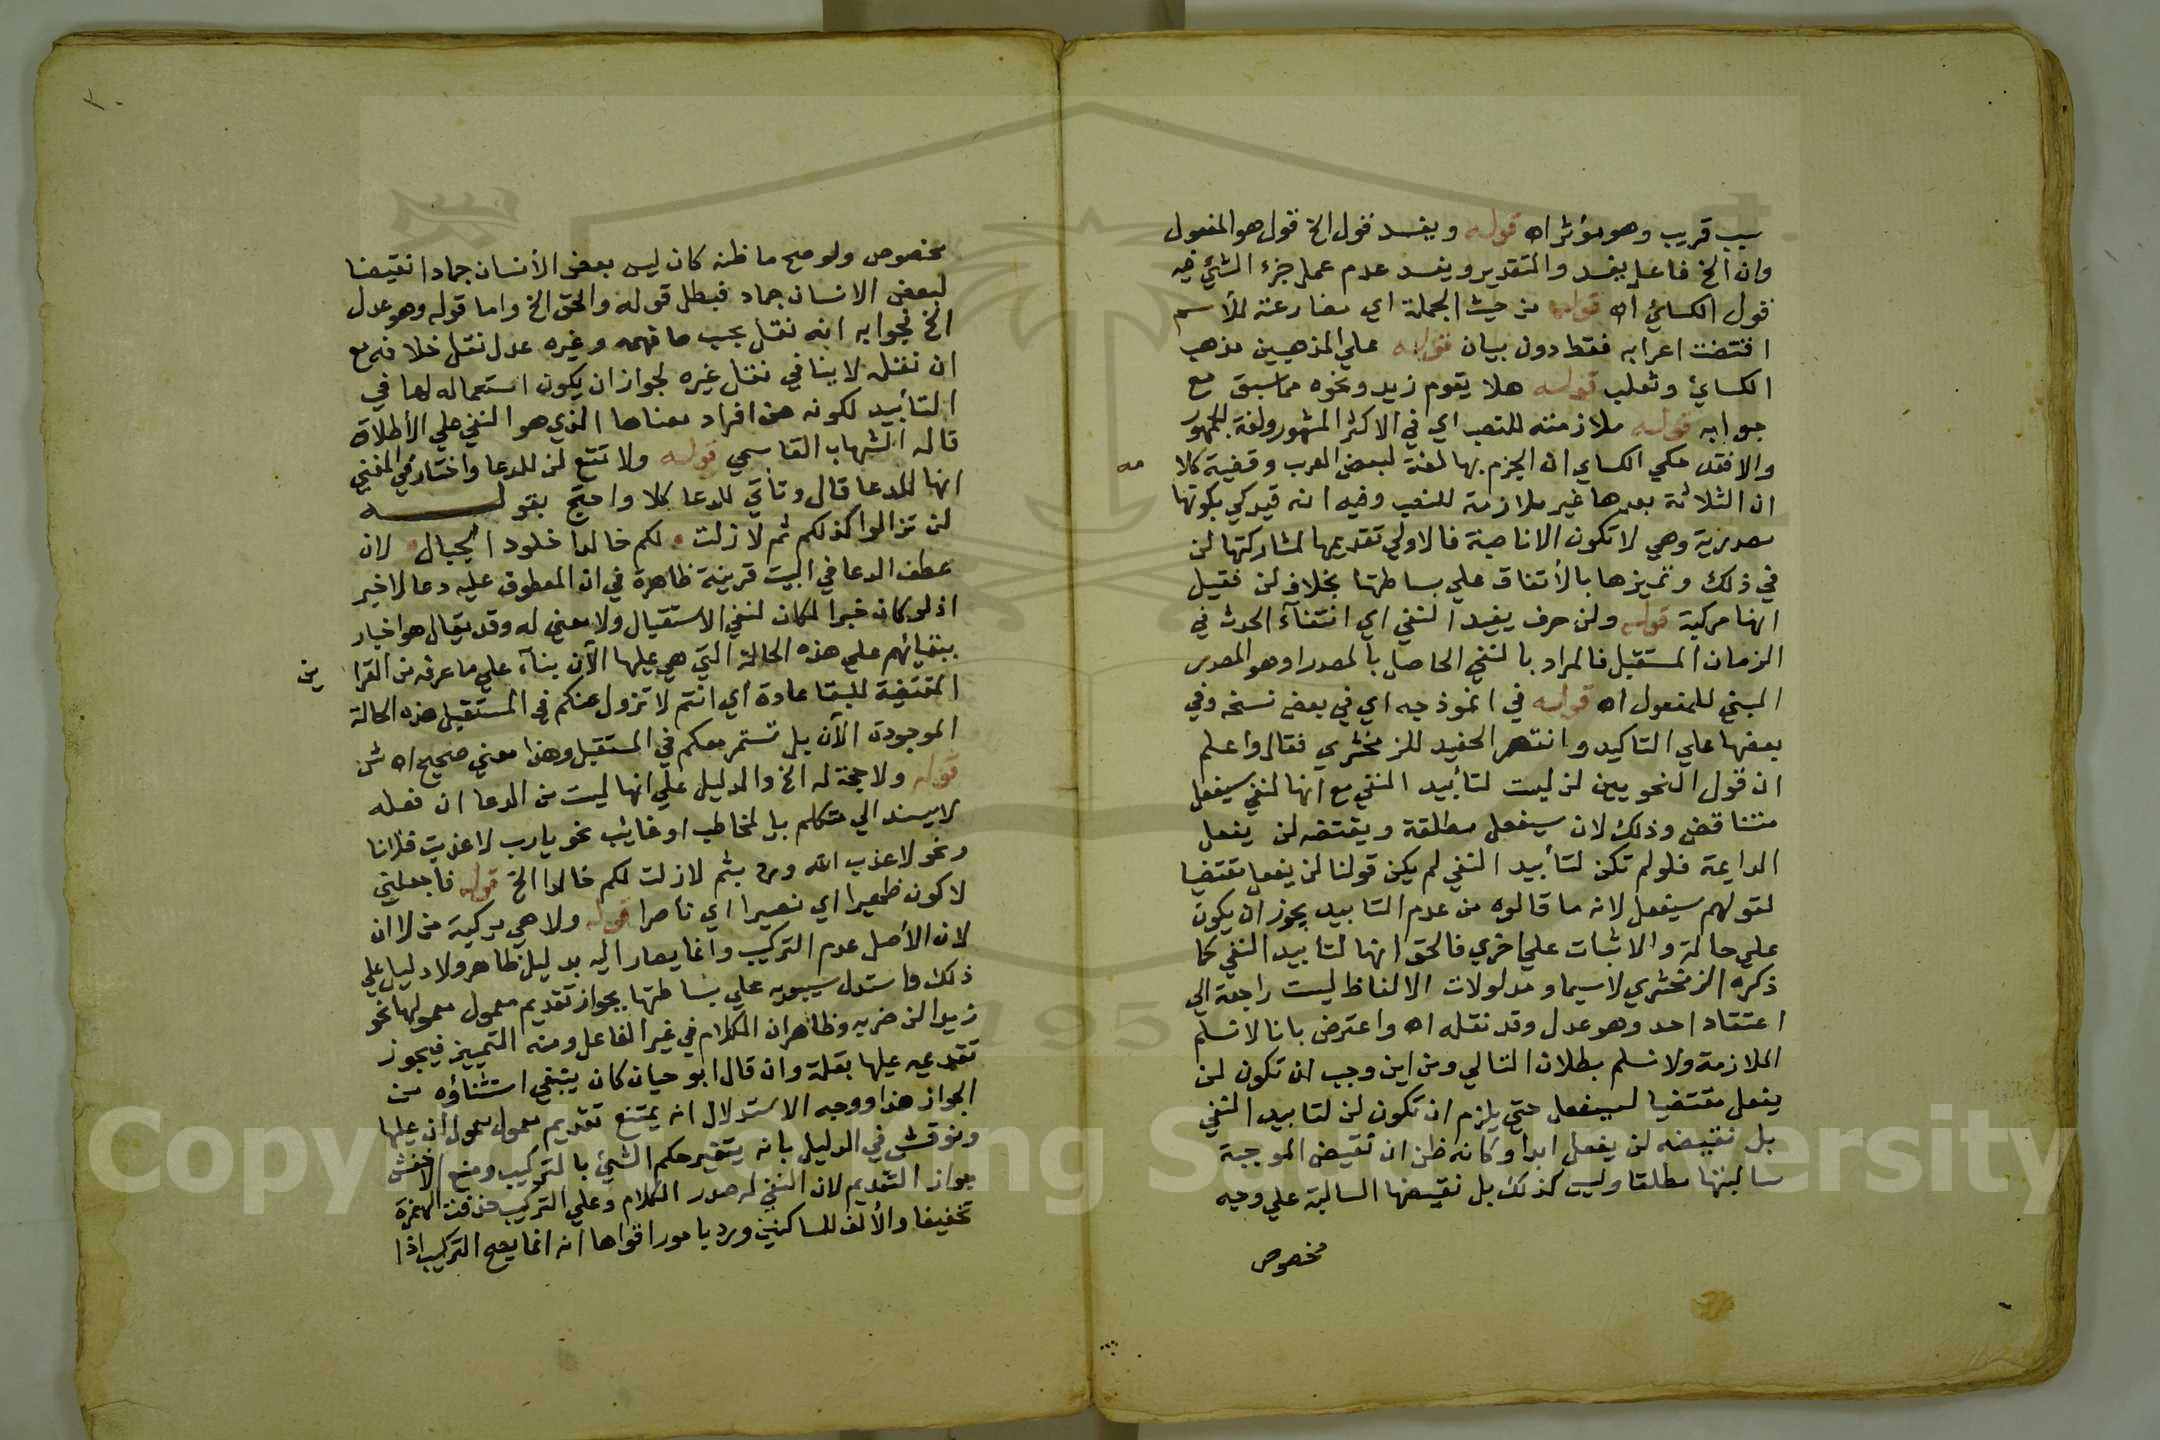 سبب قريب وهو مؤثر اه قوله ويفسد قول الخ قول هو المفعول
وان الخ فاعل يفسد والتقدير ويفسد عدم عمل جزء الشئ فيه
قول الكسائي اه قوله من حيث الجملة اي مضارعته للأسم
اقتضت اعرابه فقط دون بيان قوله علي المذهبين مذهب
الكسائي وثعلب قوله هلا يقوم زيد ونحوه مما سبق مع
جوابه قوله ملازمته للنصب اي في الاكثر المشهور ولغة الجمهور
والا فقد حكي الكساي ان الجزم بها لغة لبعض العرب وقضية كلامه
ان الثلاثة بعدها غير ملازمة للنصب وفيه انه قيد كي بكونها
مصدرية وهي لا تكون الا ناصبة فالاولي تقديمها لمشاركتها لن
في ذلك وتميزها بالأتفاق علي بساطتها بخلاف لن فقيل
انها مركبة قوله ولن حرف يفيد النفي اي انتفآء الحدث في
الزمان المستقبل فالمراد بالنفي الحاصل بالمصدر او هو المصدر
المبني للمفعول اه قوله في انموذجه اي في بعض نسخه وفي
بعضها علي التاكيد وانتصر الحفيد للزمخشري فقال واعلم
ان قول النحويين لن ليست لتأبيد النفي مع انها لنفي سيفعل
متناقض وذلك لان سيفعل مطلقة ونقيضه لن يفعل
الدايمة فلو لم تكن لتأبيد النفي لم يكن قولنا لن يفعل نقيضا
لقولهم سيفعل لانه ما قالوه من عدم التابيد يجوز ان يكون
علي حالة والاثبات علي اخري فالحق انها لتابيد النفي كما
ذكره الزمخشري لاسيما ومدلولات الالفاظ ليست راجعة الي
اعتقاد احد وهو عدل وقد نقله اه واعترض بانا لا نسلم
الملازمة ولا نسلم بطلان التالي ومن اين وجب ان تكون لن
يفعل نقيضا لسيفعل حتي يلزم ان تكون لن لتابيد النفي
بل نقيضه لن يفعل ابدا وكانه ظن ان نقيض الموجبة
سالبتها مطلقا وليس كذلك بل نقيضها السالبة علي وجه
مخصوص
مخصوص ولو صح ما ظنه كان ليس بعض الأنسان جمادا نقيضا
لبعض الانسان جماد فبطل قوله والحق الخ واما قوله وهو عدل
الخ فجوابه انه نقل بحسب ما فهمه وغيره عدل نقل خلافه مع
ان نقله لا ينافي نقل غيره لجواز ان يكون استعماله لها في
التأبيد لكونه من افراد معناها الذي هو النفي علي الأطلاق
قاله الشهاب القاسمي قوله ولا تقع لن للدعا واختار في المغني
انها للدعا قال وتأتي للدعا كلا واحتج بقوله
لن تزالوا كذلكم ثم لا زلت لكم خالدا خلود الجبال لان
عطف الدعا في البيت قرينة ظاهرة في ان المعطوف عليه دعا لا خبر
اذ لو كان خبرا لكان لنفي الاستقبال ولا معني له وقد يقال هو اخبار
ببقيائهم علي هذه الحالة التي هي عليها الآن بنآء علي ما عرفه من القراين
المقتضية للبقا عادة اي انتم لا تزول عنكم في المستقبل هذه الحالة
الموجودة الآن بل تستمر معكم في المستقبل وهذا معني صحيح اه ش
قوله ولا حجة له الخ والدليل علي انها ليست من الدعا ان فعله
لا يسند الي متكلم بل لمخاطب او غايب نحو يارب لا عذبت فلانا
ونحو لا عذب الله ورد بثم لا زلت لكم خالدا الخ قوله فاجعلني
لا كون ظهيرا اي نصيرا اي ناصرا قوله ولا هي مركبة من لا ان
لان الأصل عدم التركيب وانما يصار اليه بدليل ظاهر ولا دليل علي
ذلك واستدل سيبويه علي بساطتها بجواز تقديم معمول معمولها نحو
زيدا لن ضربه وظاهر ان الكلام في غير الفاعل ومنه التمييز فيجوز
تقديمه عليها بقلة وان قال ابو حيان كان ينبغي استثناؤه من
الجواز هذا ووجه الاستدلال انه يمتنع تقديم معمول معمول ان عليها
ونوقش في الدليل بانه يتغير حكم الشئ بالتركيب ومنع الاخفش
جواز التقديم لان النفي له صدر الكلام وعلي التركيب حذفت الهمزة
تخفيفا والألف للساكنين ورد بامور اقواها انه انما يصح التركيب اذا